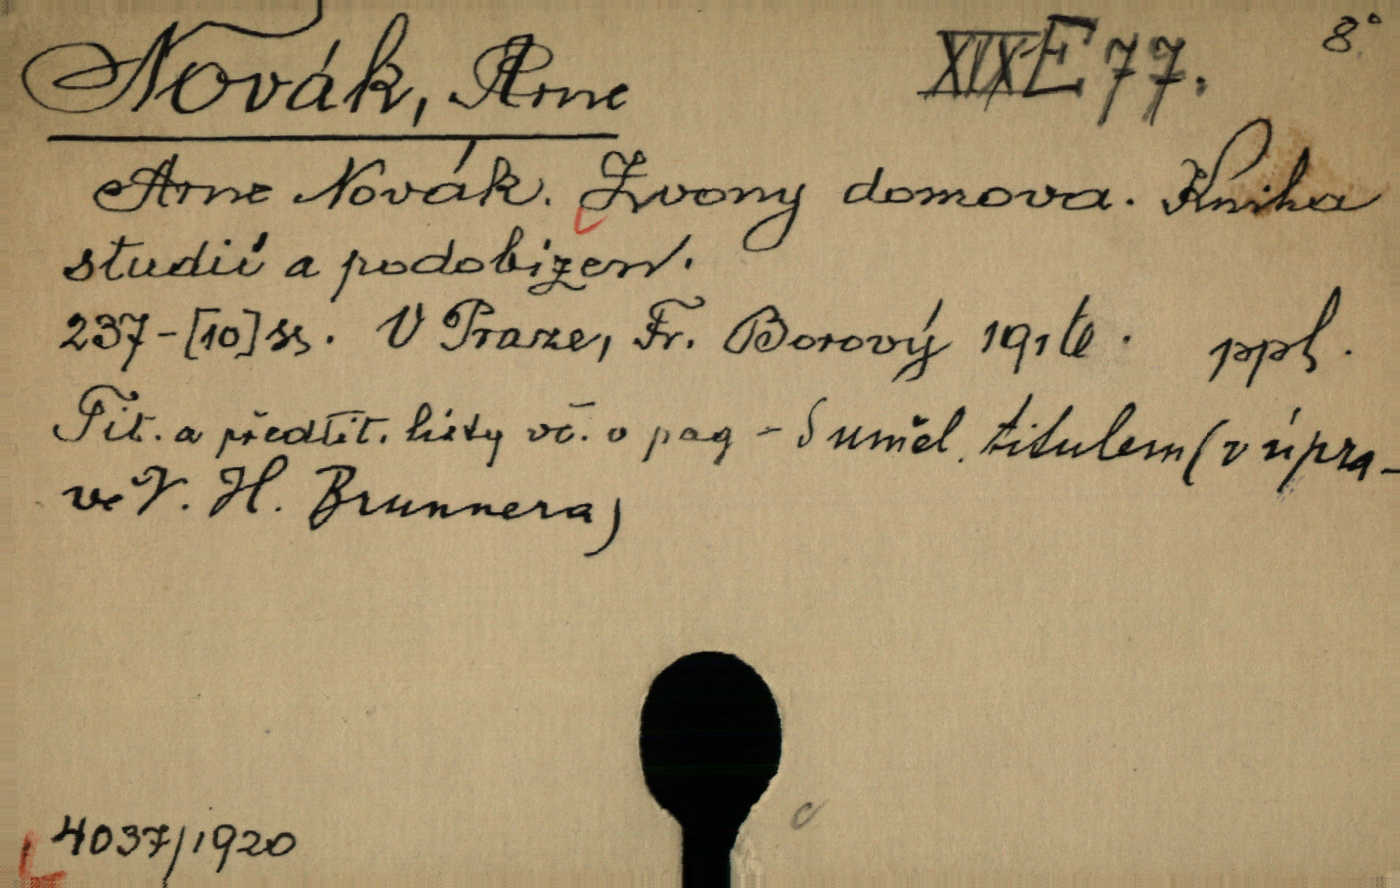 Novák, Arne
XIX E 77.
8°
Arne Novák. Zvony domova. Kniha
studií a podobizen.
237-[10] ss. V Praze, Fr. Borový 1916. ppl.
Tit. a předtit. listy vč. o pag - S uměl. titulem (v úpra-
ve V. H. Brunnera)
c
4037/1920